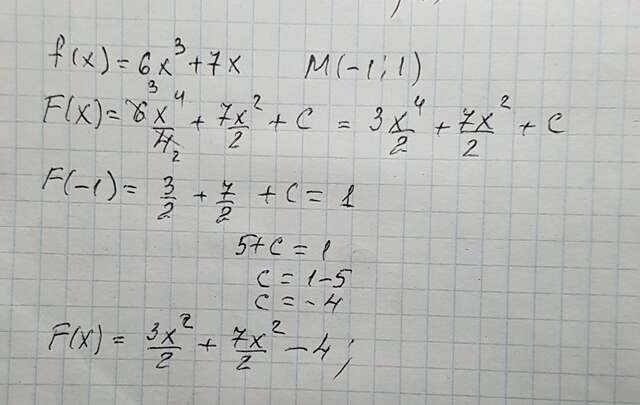 f(x) = 6x³ + 7x M(-1; 1)
F(x) = 6x⁴/4 + 7x²/2 + C = 3x⁴/2 + 7x²/2 + C
F(-1) = 3/2 + 7/2 + C = 1
5 + C = 1
C = 1 - 5
C = -4
F(x) = 3x²/2 + 7x²/2 - 4;